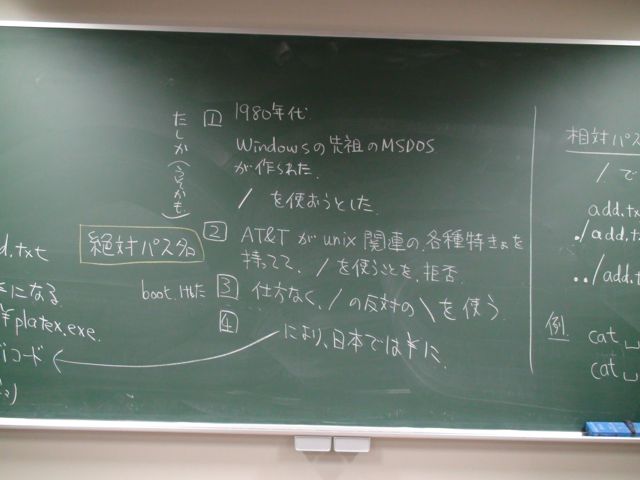 d.txt
になる
¥platex.exe.
コード
絶対パス名
たしか(うそかも)
1 1980年代
Windowsの先祖のMSDOS
が作られた.
/ を使おうとした.
2 AT&Tがunix関連の各種特きょを
持ってて、/を使うことを拒否.
boot.html
3 仕方なく、/の反対の\を使う.
4 により、日本では¥に.
相対パス
/で
add.tx
./add.tx
../add.t
例.
cat␣
cat␣